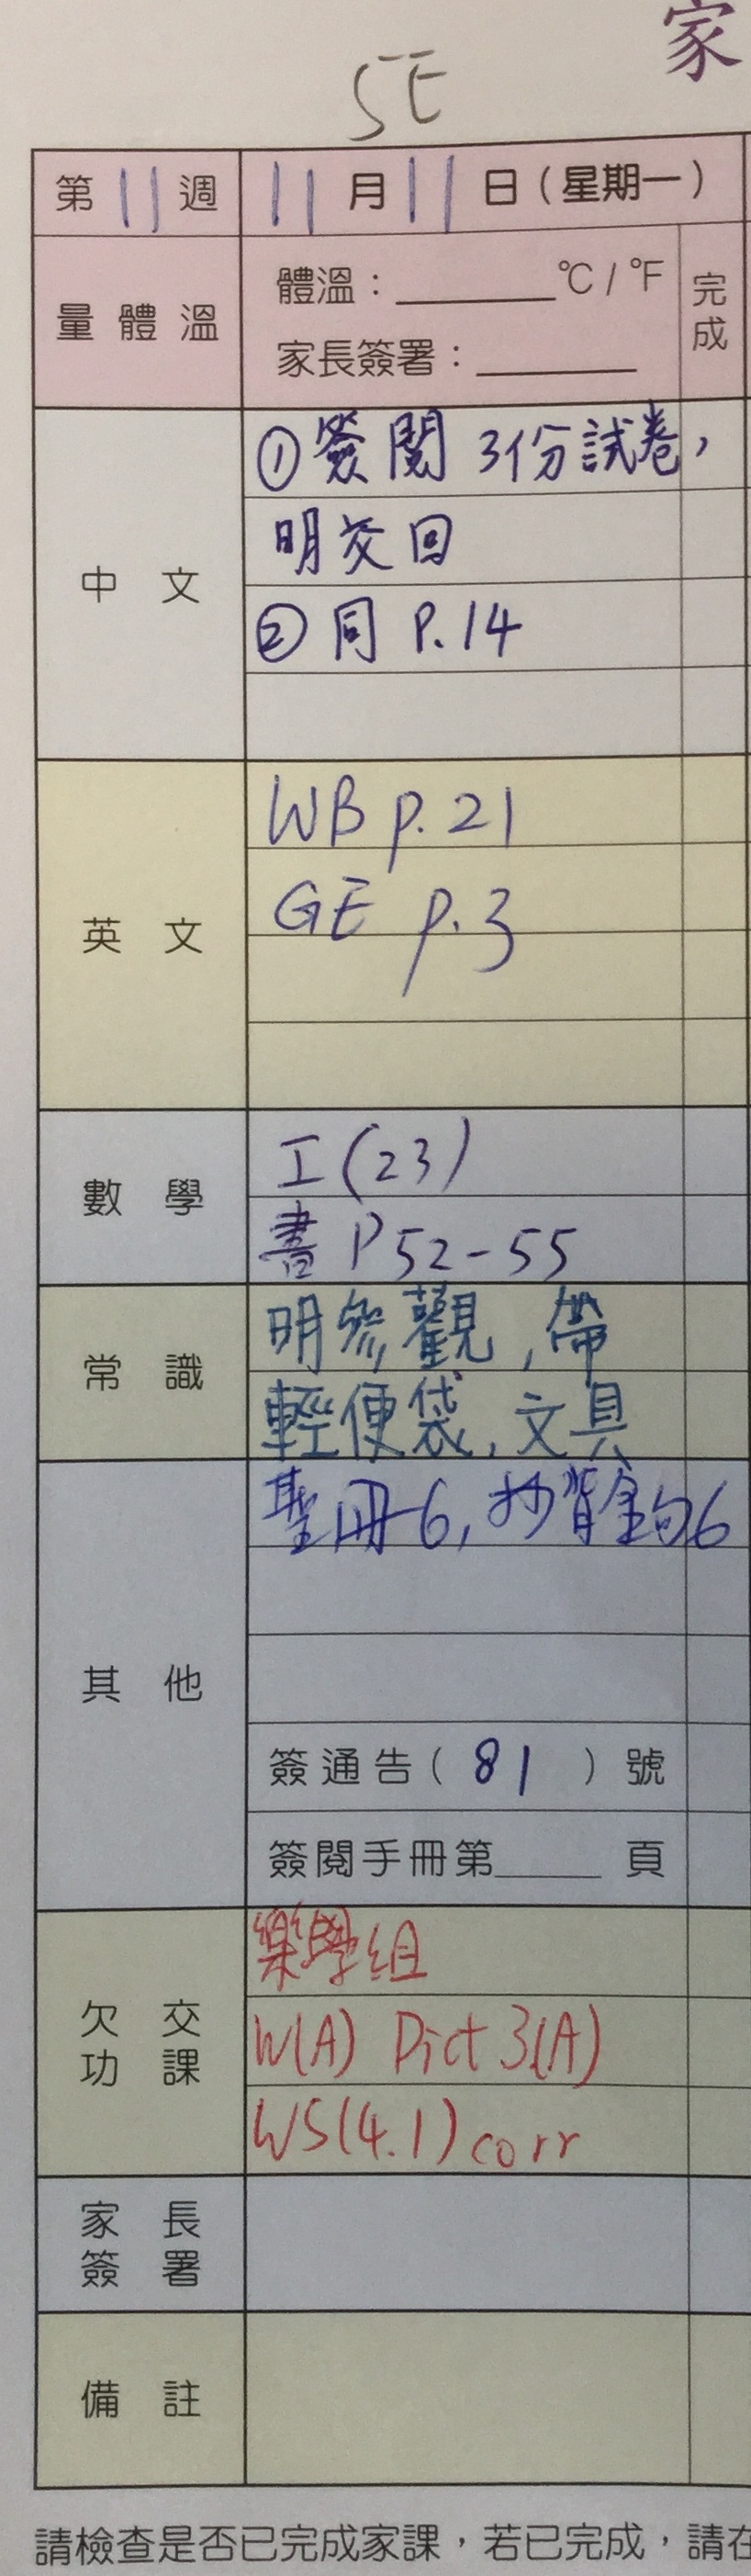 家
5E
第 11 週 11 月 11 日（星期一）
量體溫 體溫：______°C / °F 完成
家長簽署：______
中文
①簽閱 3份試卷，
明交回
②同 P.14
英文
WB p.21
GE p.3
數學
工(23)
書 P 52-55
常識
明參觀，帶
輕便袋，文具
其他
聖冊6，抄背金句6
簽通告（ 81 ）號
簽閱手冊第______頁
欠交功課
樂學組
W(A) Dict 3(A)
WS(4.1) corr
家長簽署
備註
請檢查是否已完成家課，若已完成，請在